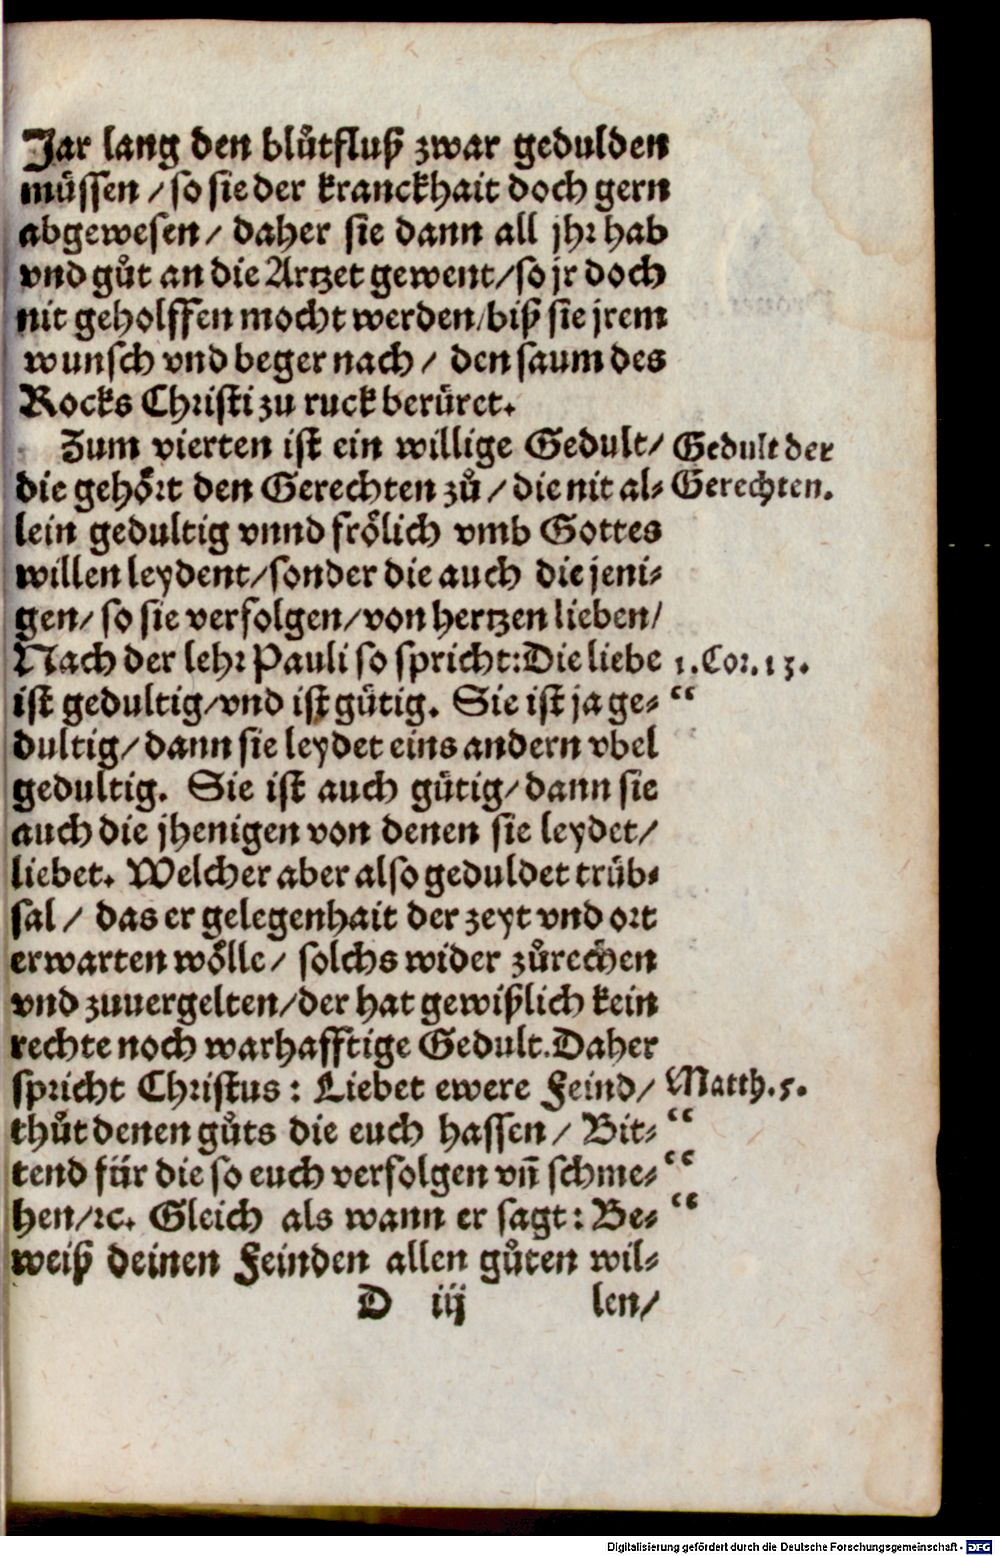 Jar lang den blůtfluß zwar gedulden
müssen / so sie der kranckhait doch gern
abgewesen / daher sie dann all jhr hab
vnd gůt an die Artzet gewent / so jr doch
nit geholffen mocht werden / biß sie jrem
wunsch vnd beger nach / den saum des
Rocks Christi zu ruck berüret.
Zum vierten ist ein willige Gedult / Gedult der
die gehört den Gerechten zů / die nit al⸗ Gerechten.
lein gedultig vnnd frölich vmb Gottes
willen leydent / sonder die auch die jeni⸗
gen / so sie verfolgen / von hertzen lieben /
Nach der lehr Pauli so spricht: Die liebe 1. Cor. 13.
ist gedultig / vnd ist gütig. Sie ist ja ge⸗ “
dultig / dann sie leydet eins andern vbel
gedultig. Sie ist auch gütig / dann sie
auch die jhenigen von denen sie leydet /
liebet. Welcher aber also geduldet trüb⸗
sal / das er gelegenhait der zeyt vnd ort
erwarten wölle / solchs wider zůrechen
vnd zuuergelten / der hat gewißlich kein
rechte noch warhafftige Gedult. Daher
spricht Christus: Liebet ewere Feind / Matth. 5.
thůt denen gůts die euch hassen / Bit⸗ “
tend für die so euch verfolgen vñ schme⸗ “
hen / ꝛc. Gleich als wann er sagt: Be⸗ “
weiß deinen Feinden allen gůten wil⸗
D iij len /
Digitalisierung gefördert durch die Deutsche Forschungsgemeinschaft - DFG